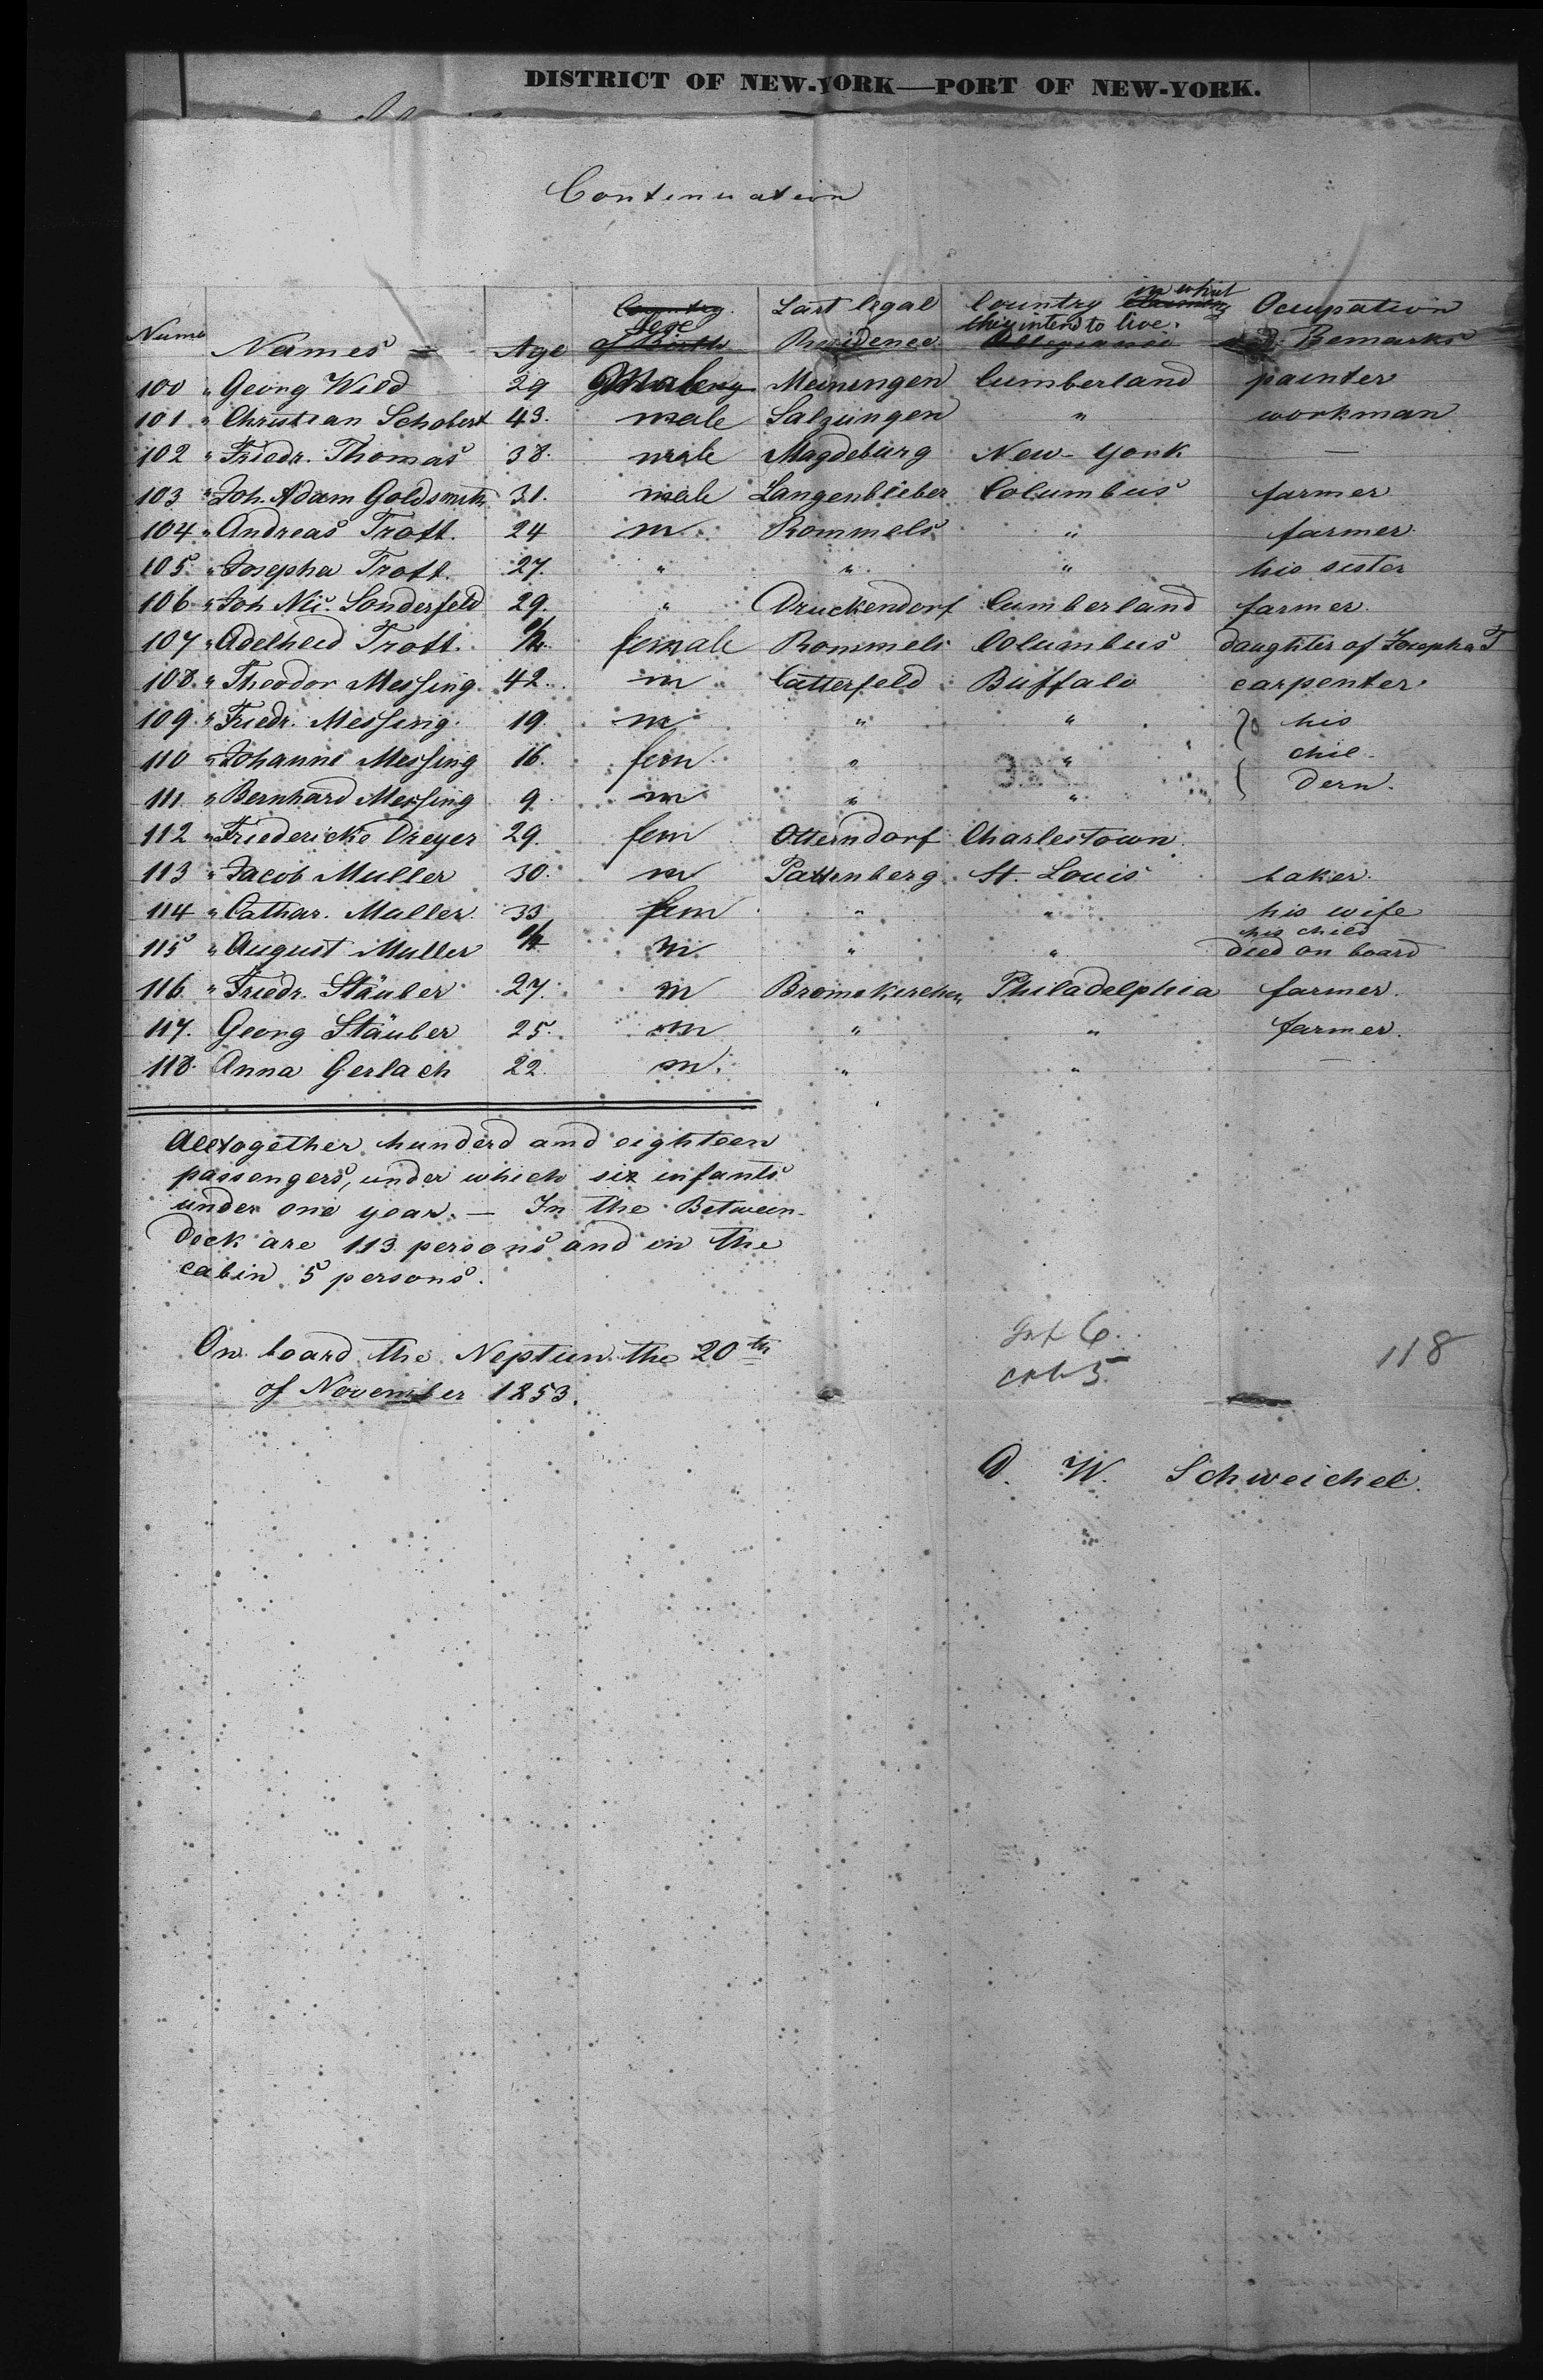 DISTRICT OF NEW-YORK—PORT OF NEW-YORK.
Continuation
Numb Names Age Country Sexe of Birth Last legal Residence Country in what they intend to live. Allegiance Ocupation Remarks
100 " Georg Wild 29 Meiningen Cumberland painter
101 " Christian Schobert 43. male Salzungen " workman
102 " Friedr. Thomas 38. male Magdeburg New-York —
103 " Joh. Adam Goldsmith 31. male Langenblieber Columbus farmer
104 " Andreas Trott. 24 m Rommels " farmer
105 " Josepha Trott. 27. " " " his sister
106 " Joh Nic. Sonderfeld 29. " Druckendorf Cumberland farmer
107 " Adelheid Trott. female Rommels Columbus daughter of Josepha T
108 " Theodor Messing. 42. m Catterfeld Buffalo carpenter
109 " Friedr. Messing. 19. m " " his
110 " Johanne Messing 16. fem " " chil-
111 " Bernhard Messing 9 m " " dern.
112 " Friedericke Dreyer 29. fem Otterndorf Charlestown
113 " Jacob Muller 30. m Pattenberg St. Louis baker.
114 " Cathar. Muller 33 fem " " his wife
115 " August Muller m " " his child died on board
116 " Friedr. Stäuber 27. m Bromskirchen Philadelphia farmer.
117. Georg Stäuber 25. m " " farmer.
118. Anna Gerlach 22 m. " " —
Alltogether hunderd and eighteen
passengers, under which six infants
under one year. — In the Between-
deck are 113 persons and in the
cabin 5 persons.
On board the Neptun the 20th
of November 1853.
Inf 6.
cab 5.
118
D. W. Schweichel.